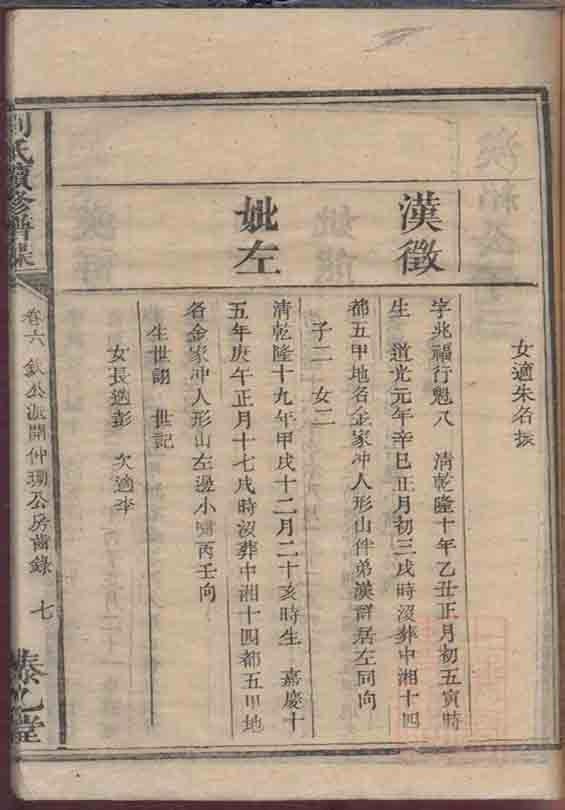 女適朱名振
漢徵
字兆福行魁八 清乾隆十年乙丑正月初五寅時
生 道光元年辛巳正月初三戌時沒葬中湘十四
都五甲地名金家冲人形山伴弟漢群居左同向
子二 女二
妣左
清乾隆十九年甲戌十二月二十亥時生 嘉慶十
五年庚午正月十七戌時沒葬中湘十四都五甲地
名金家冲人形山左邊小嘴丙壬向
生世詡 世記
女長適彭 次適李
劉氏續修譜牒
卷六 欽公派開仲 公房齒錄 七
藜乙堂